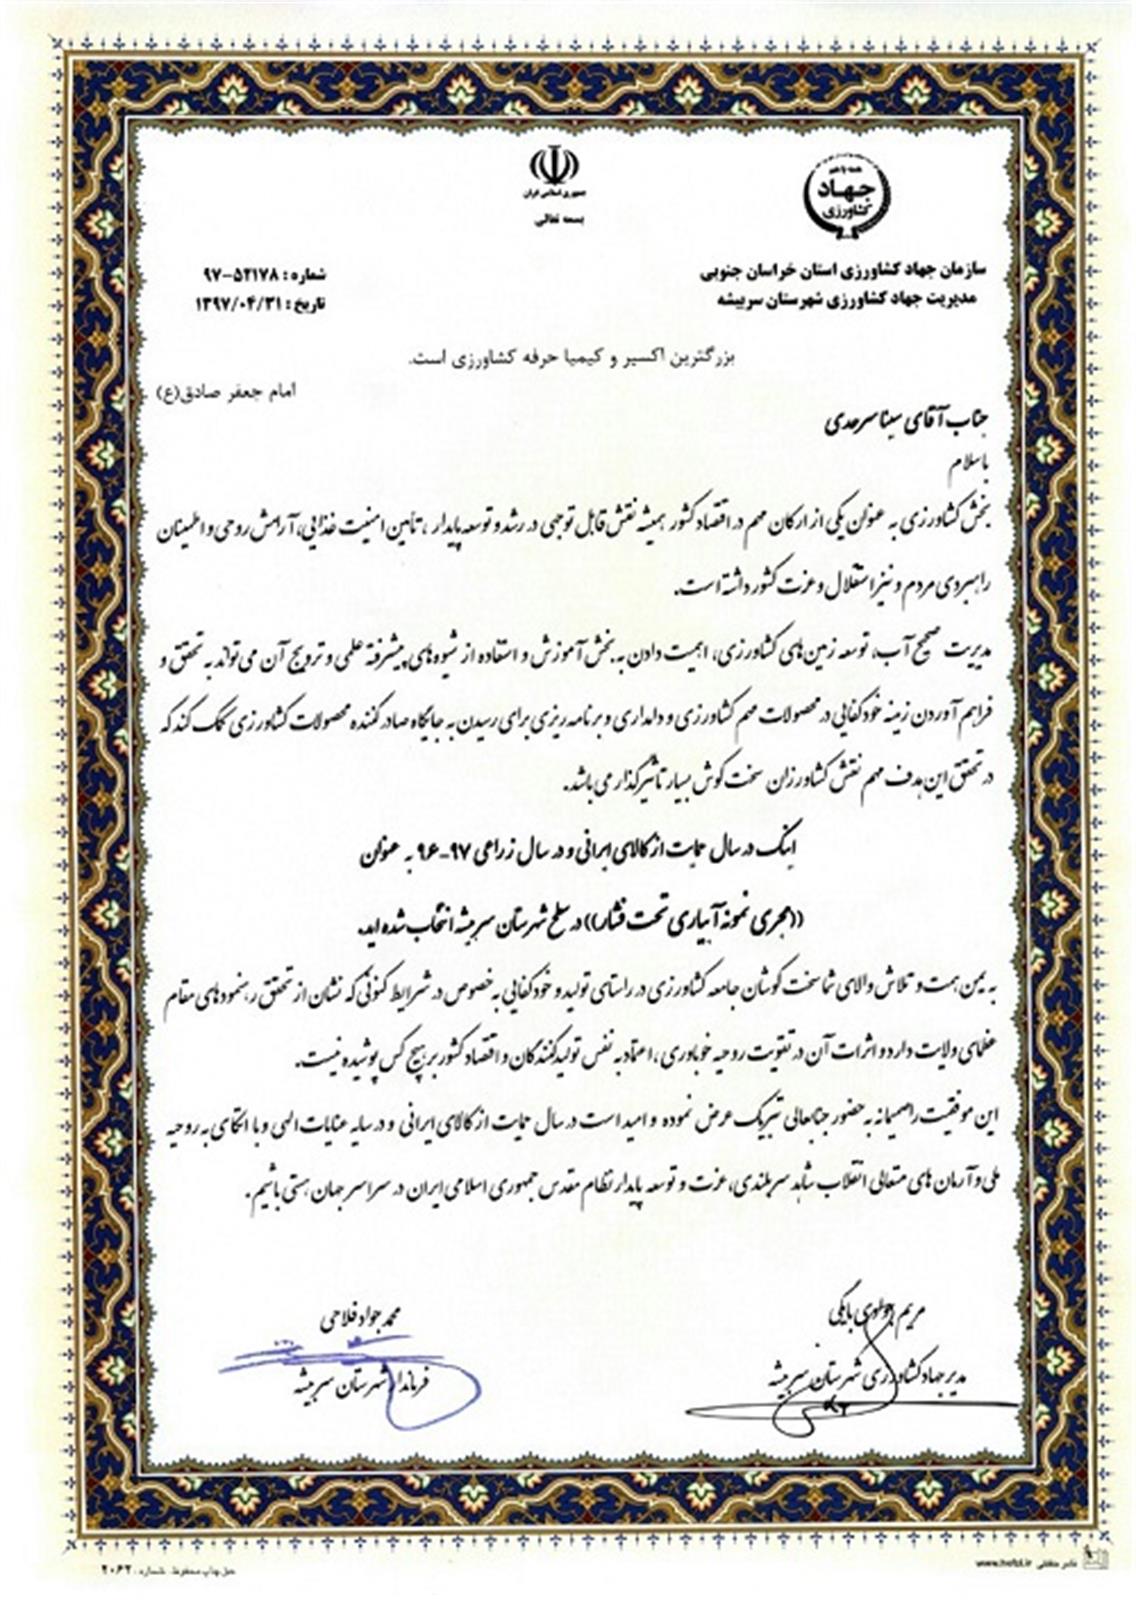 جمهوری اسلامی ایران
بسمه تعالی
همه با هم
جهاد
کشاورزی
سازمان جهاد کشاورزی استان خراسان جنوبی
مدیریت جهاد کشاورزی شهرستان سربیشه
شماره : ۵۲۱۷۸-۹۷
تاریخ : ۱۳۹۷/۰۴/۳۱
بزرگترین اکسیر و کیمیا حرفه کشاورزی است.
امام جعفر صادق(ع)
جناب آقای سینا سرحدی
با سلام
بخش کشاورزی به عنوان یکی از ارکان مهم در اقتصاد کشور همیشه نقش قابل توجهی در رشد و توسعه پایدار ، تأمین امنیت غذایی، آرامش روحی و اطمینان
راهبردی مردم و نیز استقلال و عزت کشور داشته است.
مدیریت صحیح آب، توسعه زمین های کشاورزی، اهمیت دادن به بخش آموزش و استفاده از شیوه های پیشرفته علمی و ترویج آن می تواند به تحقق و
فراهم آوردن زمینه خودکفایی در محصولات مهم کشاورزی و دامداری و برنامه ریزی برای رسیدن به جایگاه صادر کننده محصولات کشاورزی کمک کند که
در تحقق این هدف مهم نقش کشاورزان سخت کوش بسیار تأثیرگذار می باشد.
اینک در سال حمایت از کالای ایرانی و در سال زراعی ۹۷-۹۶ به عنوان
((مجری نمونه آبیاری تحت فشار)) در سطح شهرستان سربیشه انتخاب شده اید.
به یمن همت و تلاش والای شما سخت کوشان جامعه کشاورزی در راستای تولید و خودکفایی به خصوص در شرایط کنونی که نشان از تحقق رهنمودهای مقام
عظمای ولایت دارد و اثرات آن در تقویت روحیه خودباوری ، اعتماد به نفس تولیدکنندگان و اقتصاد کشور بر هیچ کس پوشیده نیست.
این موفقیت را صمیمانه به حضور جنابعالی تبریک عرض نموده و امید است در سال حمایت از کالای ایرانی و در سایه عنایات الهی و با اتکای به روحیه
ملی و آرمان های متعالی انقلاب شاهد سربلندی، عزت و توسعه پایدار نظام مقدس جمهوری اسلامی ایران در سراسر جهان هستی باشیم.
مریم بابکی
مدیر جهاد کشاورزی شهرستان سربیشه
محمد جواد فلاحی
فرماندار شهرستان سربیشه
حق چاپ محفوظ. شماره : ۲۰۶۲